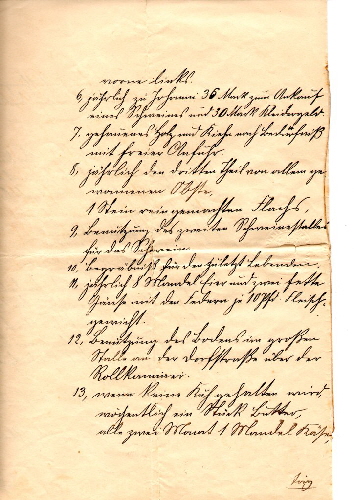 vorne links.
6, jährlich zu Johanni 36 Mark zum Ankauf
eines Schweines und 30 Mark Kleidergeld.
7, gehauenes Holz und Kiehn nach Bedürfniß
mit freier Anfuhr.
8, jährlich den dritten Theil von allem ge-
wonnenen Obste,
1 Stein rein gemachten Flachs,
9, Benutzung des zweiten Schweinestalles
für das Schwein.
10, Begräbniß für den zuletzt Lebenden.
11, jährlich 8 Mandel Eier und zwei fette
Gänse mit den Federn je 10 Pfd. Fleisch-
gewicht.
12, Benutzung des Bodens im großen
Stalle an der Dorfstraße über der
Rollkammer.
13, wenn keine Kuh gehalten wird
wöchentlich ein Stück Butter,
alle zwei Monat 1 Mandel Käse,